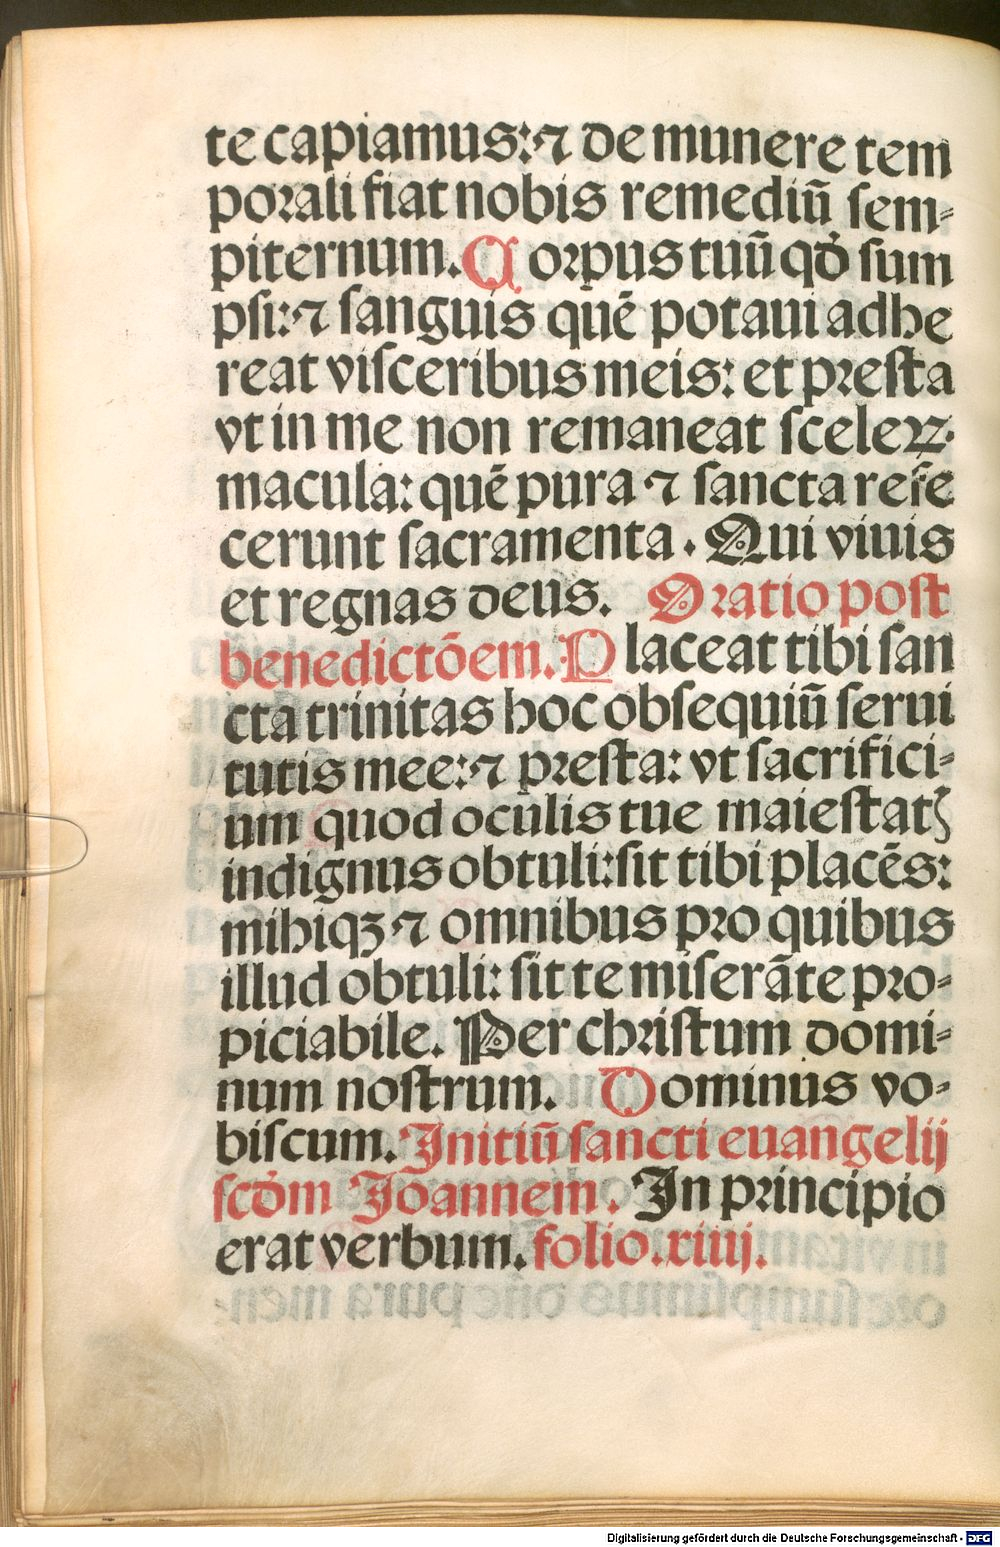 te capiamus: ⁊ de munere tem
porali fiat nobis remediū ſem⸗
piternum. Corpus tuū qđ ſum
pſi: ⁊ ſanguis quē potaui adhe
reat viſceribus meis: et preſta
vt in me non remaneat ſceleꝝ
macula: quē pura ⁊ ſancta refe
cerunt ſacramenta. Qui viuis
et regnas deus. Oratio poſt
benedictōem. Placeat tibi ſan
cta trinitas hoc obſequiū ſerui
tutis mee: ⁊ preſta: vt ſacrifici⸗
um quod oculis tue maieſtatꝭ
indignus obtuli: ſit tibi placēs:
mihiqꝫ ⁊ omnibus pro quibus
illud obtuli: ſit te miſerāte pro⸗
piciabile. Per chriſtum domi⸗
num noſtrum. Dominus vo⸗
biſcum. Initiū ſancti euangelij
ſcđm Joannem. In principio
erat verbum. folio.xiiij.
Digitalisierung gefördert durch die Deutsche Forschungsgemeinschaft - DFG